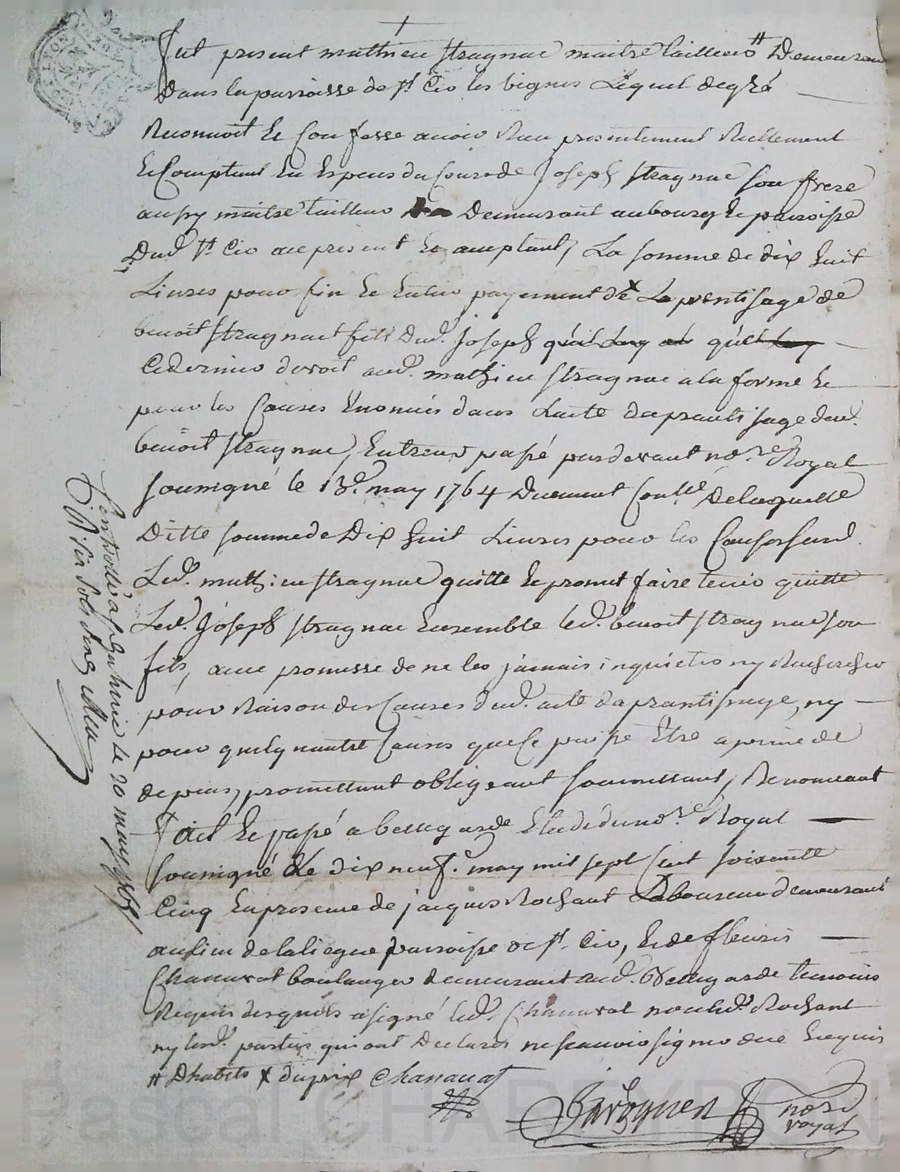 fut present mathieu stragnac maitre tailleur # Demeurant
Dans la parroisse de st Cir les vignes Lequel degré
Reconnoit Et Confesse avoir Reu presentement Reellement
Et Comptant En Especes du Cours de Joseph stragnac son frere
aussy maitre tailleur Demeurant au bourg Et paroisse
Dud. st Cir cy present Et aceptant, La somme de dix huit
Livres pour fin Et Entier payement de x La prentisage de
benoit stragnac fils Dud. Joseph que
Ce dernier devoit aud. mathieu stragnac a la forme Et
pour les Causes Enoncés dans L'acte daprantissage dud.
benoit stragnac, Entreux passé pardevant nore Royal
soussigné le 13e may 1764 Duement Conllé De laquelle
Ditte somme de Dix huit Livres pour les Causes sus d.
Led. mathieu stragnac quitte Et promet faire tenir quitte
Led. Joseph stragnac Ensemble led. benoit stragnac son
fils, avec promesse de ne les jamais inquieter ny Rechercher
pour Raison des Causes dud. acte daprantissage, ny
pour quelqu'autre Causes que ce puisse Etre a peine de
depens, promettant obligeant soumettant, Renonceant
fait Et passé a bellegarde Etude du nore Royal
soussigné Le dix neuf. may mil sept Cent soixante
Cinq En presence de jacques Rochant Laboureur demeurant
au lieu de la liegue parroisse de st. Cir, Et de fleuris
Chanavat boulanger demeurant aud. Bellegarde temoins
Requis desquels a signé led. Chanavat non led. Rochant
ny lesd. parties qui ont Declarés ne scavoir signer de ce Enquis
# D'habits x du prix Chanavat
Nore
royal
Controllé a le 20 may 1765